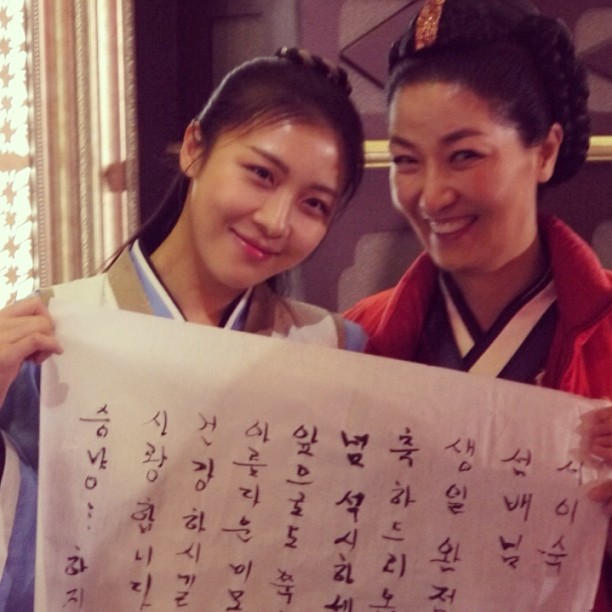 서이숙
선배님
생일 완전
축하드리
넘 섹시하세
앞으로도 쭉
아름다운 미모
건강하시길
사랑합니다
승냥... 하지